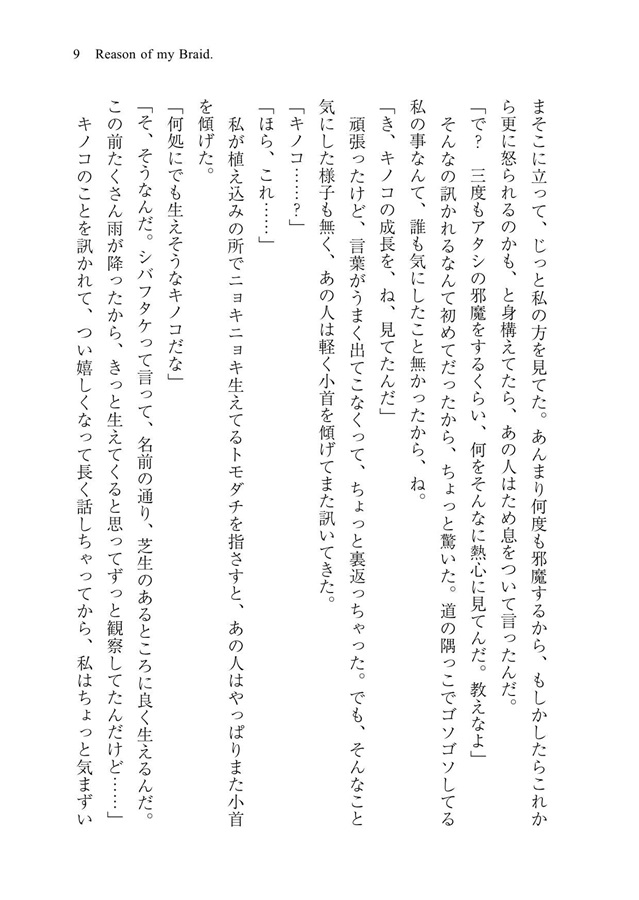 9 Reason of my Braid.
まそこに立って、じっと私の方を見てた。あんまり何度も邪魔するから、もしかしたらこれか
ら更に怒られるのかも、と身構えてたら、あの人はため息をついて言ったんだ。
「で? 三度もアタシの邪魔をするくらい、何をそんなに熱心に見てんだ。教えなよ」
そんなの訊かれるなんて初めてだったから、ちょっと驚いた。道の隅っこでゴソゴソしてる
私の事なんて、誰も気にしたこと無かったから、ね。
「き、キノコの成長を、ね、見てたんだ」
頑張ったけど、言葉がうまく出てこなくって、ちょっと裏返っちゃった。でも、そんなこと
気にした様子も無く、あの人は軽く小首を傾げてまた訊いてきた。
「キノコ……?」
「ほら、これ……」
私が植え込みの所でニョキニョキ生えてるトモダチを指さすと、あの人はやっぱりまた小首
を傾げた。
「何処にでも生えそうなキノコだな」
「そ、そうなんだ。シバフタケって言って、名前の通り、芝生のあるところに良く生えるんだ。
この前たくさん雨が降ったから、きっと生えてくると思ってずっと観察してたんだけど……」
キノコのことを訊かれて、つい嬉しくなって長く話しちゃってから、私はちょっと気まずい